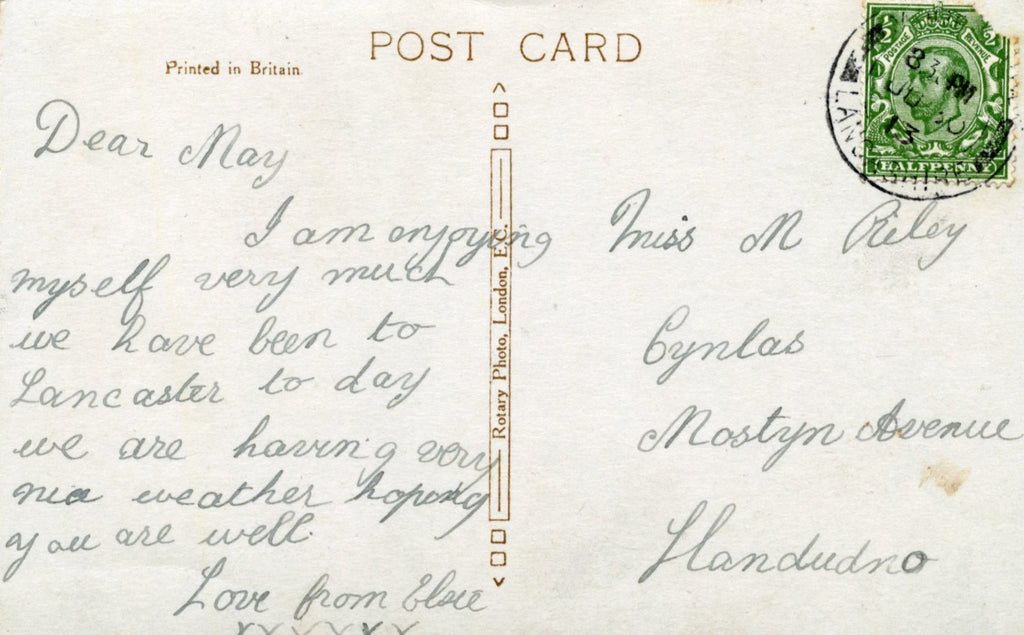 POST CARD
Printed in Britain
Dear May
I am enjoying
myself very much
we have been to
Lancaster to day
we are having very
nice weather hoping
you are well.
Love from Elsie
XXXXXX
Rotary Photo, London, E.C.
Miss M Riley
Cynlas
Mostyn Avenue
Llandudno
1/2
POSTAGE
REVENUE
HALFPENNY
8 PM
13